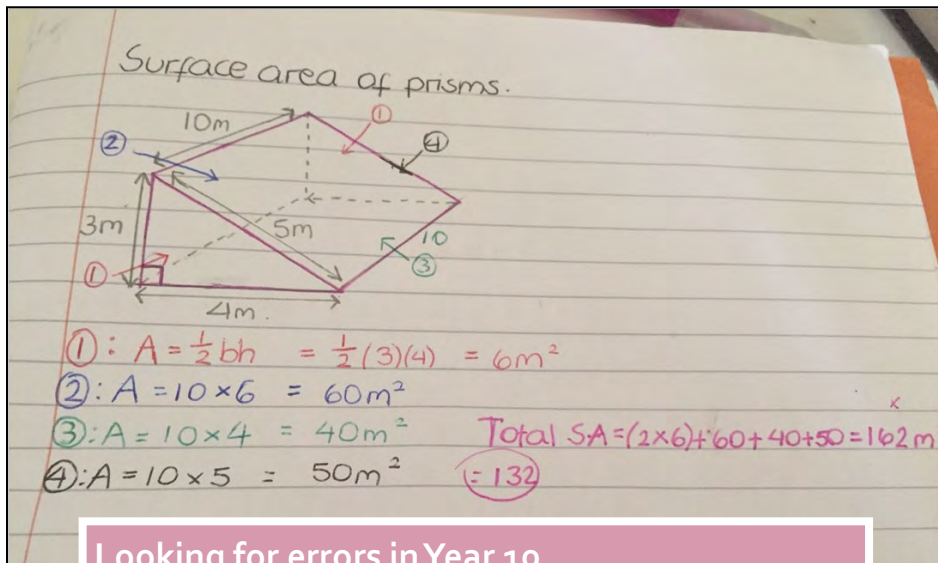 Surface area of prisms.
10m
①
②
④
3m
5m
10
①
③
4m.
①: A = ½bh = ½(3)(4) = 6m²
②: A = 10×6 = 60m²
x
③: A = 10×4 = 40m² Total SA = (2×6)+60+40+50 = 162m
④: A = 10×5 = 50m² (= 132)
Looking for errors in Year 10